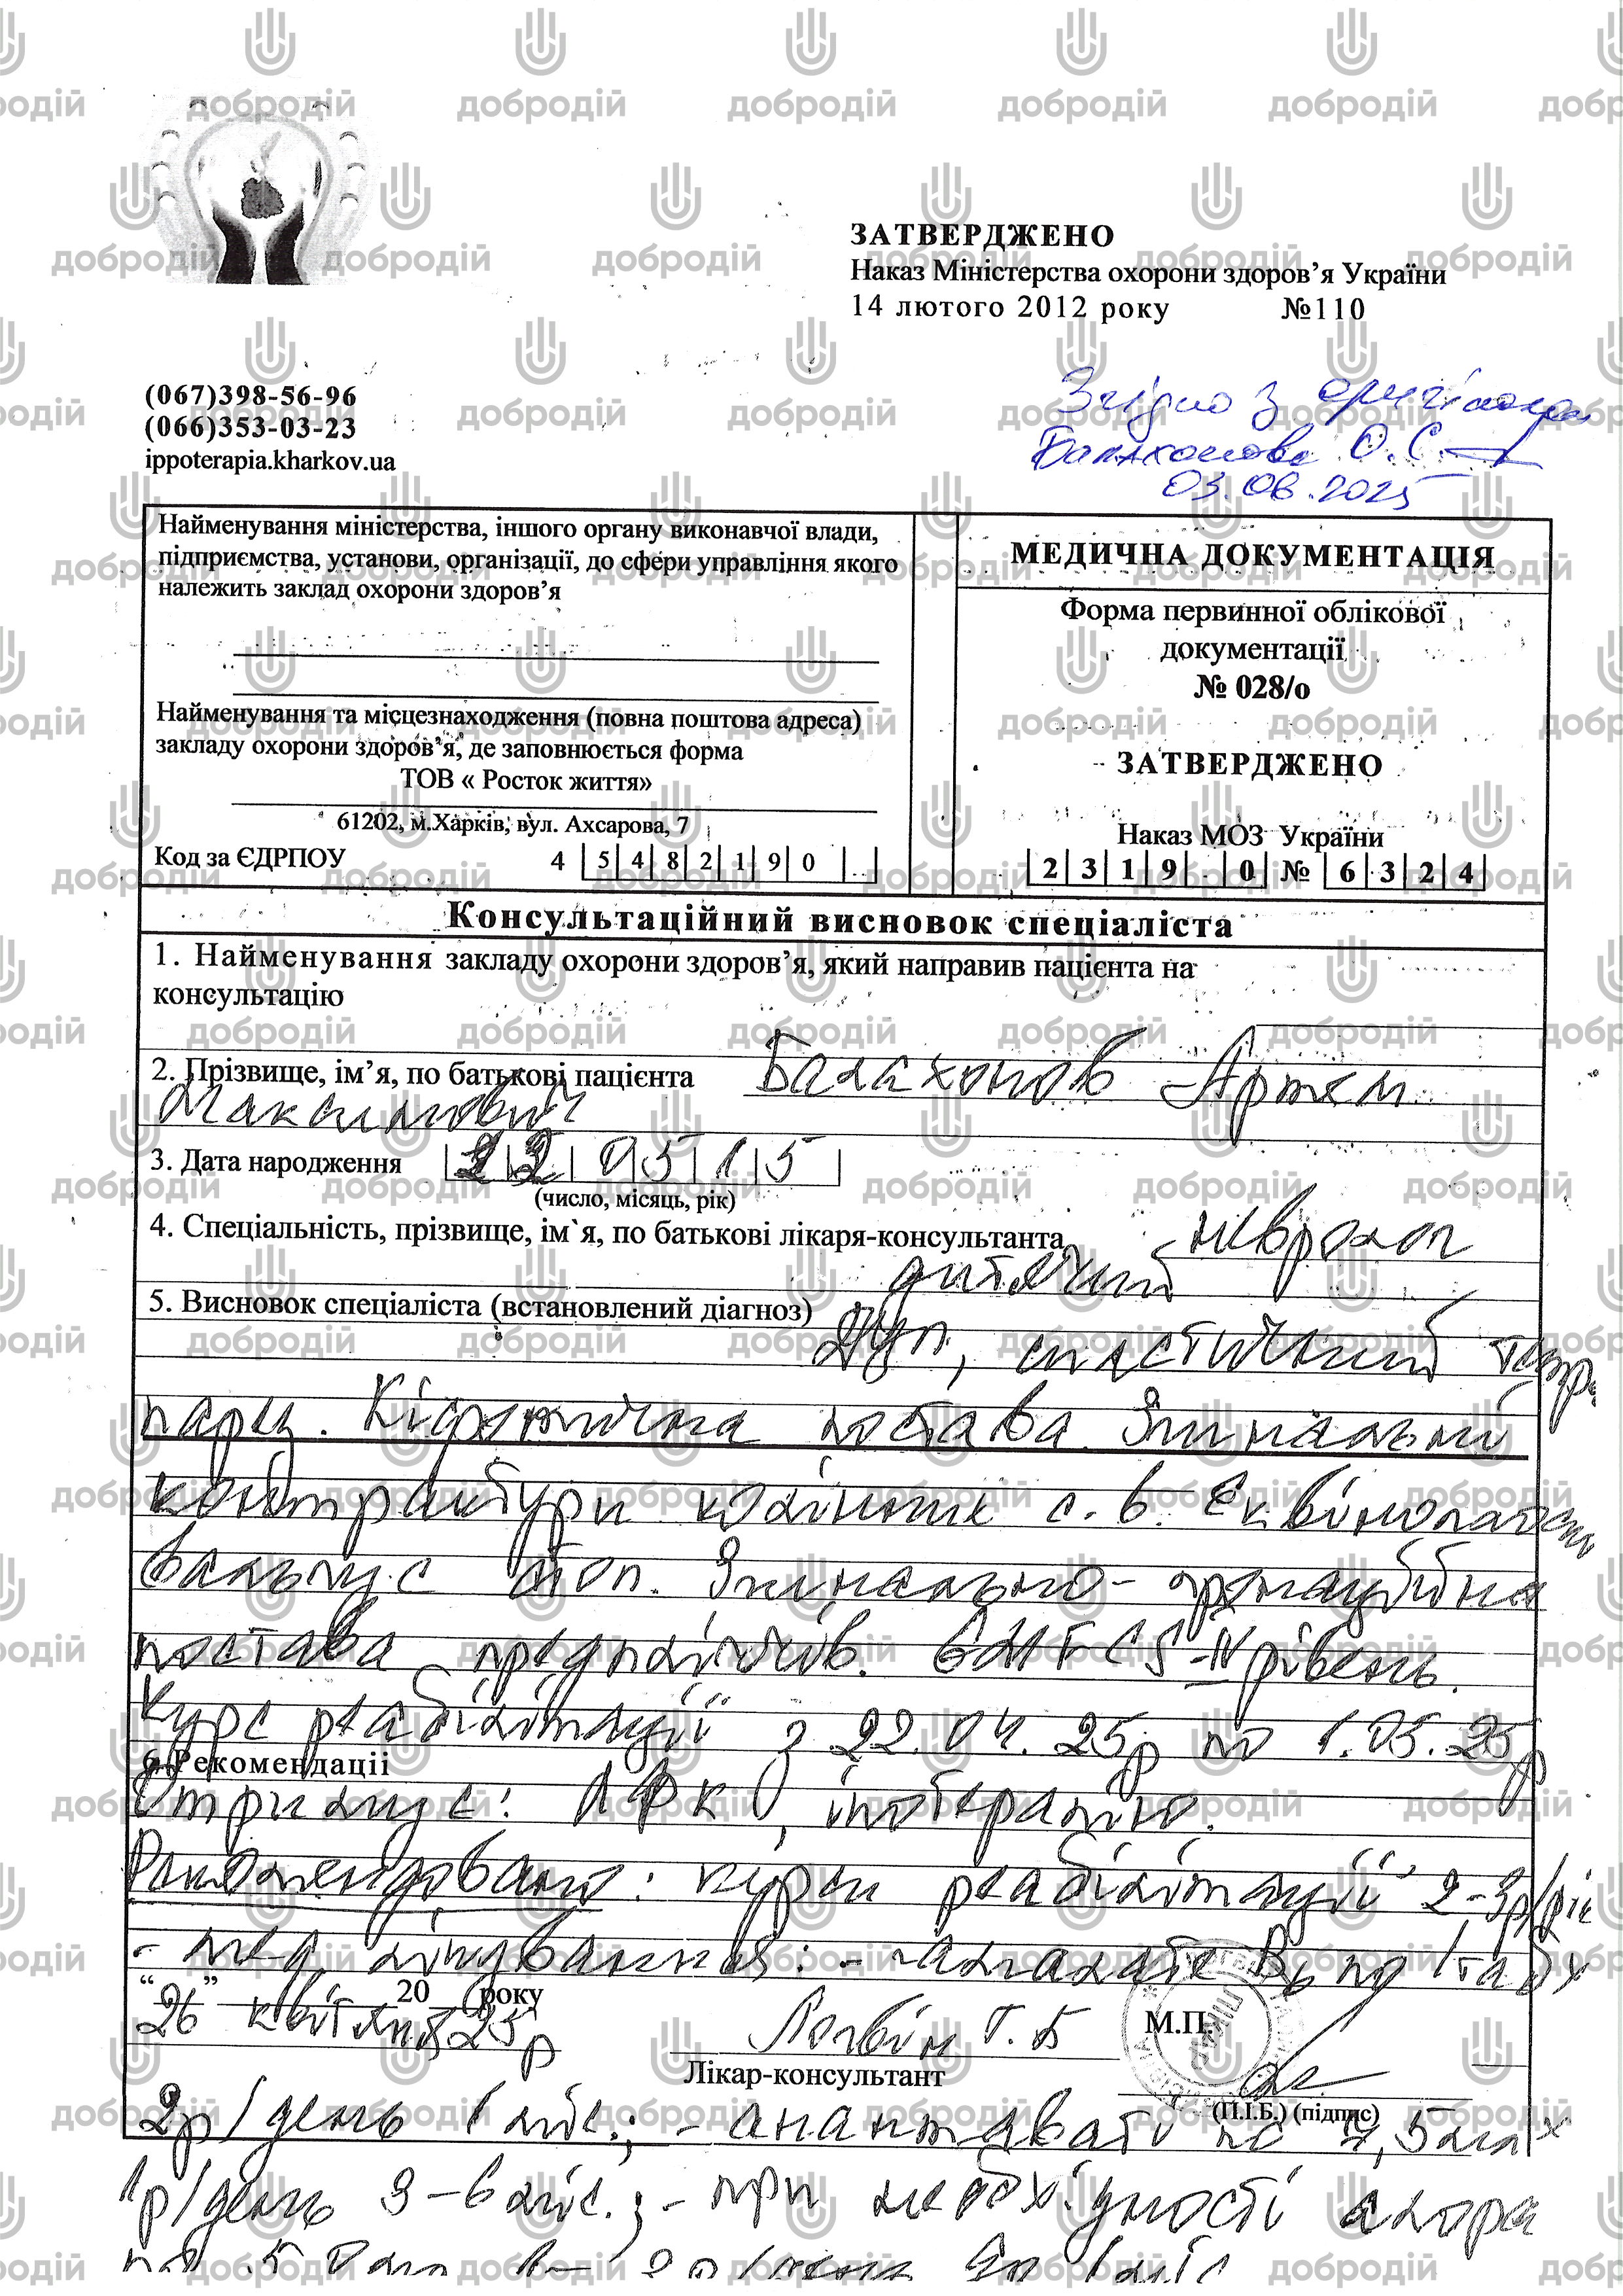 ЗАТВЕРДЖЕНО
Наказ Міністерства охорони здоров’я України
14 лютого 2012 року №110
(067)398-56-96
(066)353-03-23
ippoterapia.kharkov.ua
Згідно з оригіналом
Балахонова О.С.
03.06.2025
Найменування міністерства, іншого органу виконавчої влади,
підприємства, установи, організації, до сфери управління якого
належить заклад охорони здоров’я
Найменування та місцезнаходження (повна поштова адреса)
закладу охорони здоров’я, де заповнюється форма
ТОВ « Росток життя»
61202, м.Харків, вул. Ахсарова, 7
Код за ЄДРПОУ 4 5 4 8 2 1 9 0
МЕДИЧНА ДОКУМЕНТАЦІЯ
Форма первинної облікової
документації
№ 028/о
ЗАТВЕРДЖЕНО
Наказ МОЗ України
2 3 1 9 0 № 6 3 2 4
Консультаційний висновок спеціаліста
1. Найменування закладу охорони здоров’я, який направив пацієнта на
консультацію
2. Прізвище, ім’я, по батькові пацієнта Балахонов Артем
Максимович
3. Дата народження 2 2 0 5 1 5
(число, місяць, рік)
4. Спеціальність, прізвище, ім`я, по батькові лікаря-консультанта невролог
дитячий
5. Висновок спеціаліста (встановлений діагноз)
ДЦП, спастичний тетра
парез. Кіфотична постава. Згинальні
контрактури колінних с.в. Еквіноплано
вальгус стоп. Згинально-пронаційна
постава передпліччів. GMFCS-IV рівень.
Курс реабілітації з 22.04.25р по 1.05.25р
6. Рекомендації
Отримує: ЛФК, іпотерапію.
Рекомендовано: курси реабілітації 2-3р/рік
- мед. лікування: - В6 по 1таб х
“26” квітня 20 25р року
Логвін Т.Б М.П.
Лікар-консультант
(П.І.Б.) (підпис)
2р/день 1 міс.; - по 7,5мл х
1р/день 3-6 міс.; - при необхідності
добродій